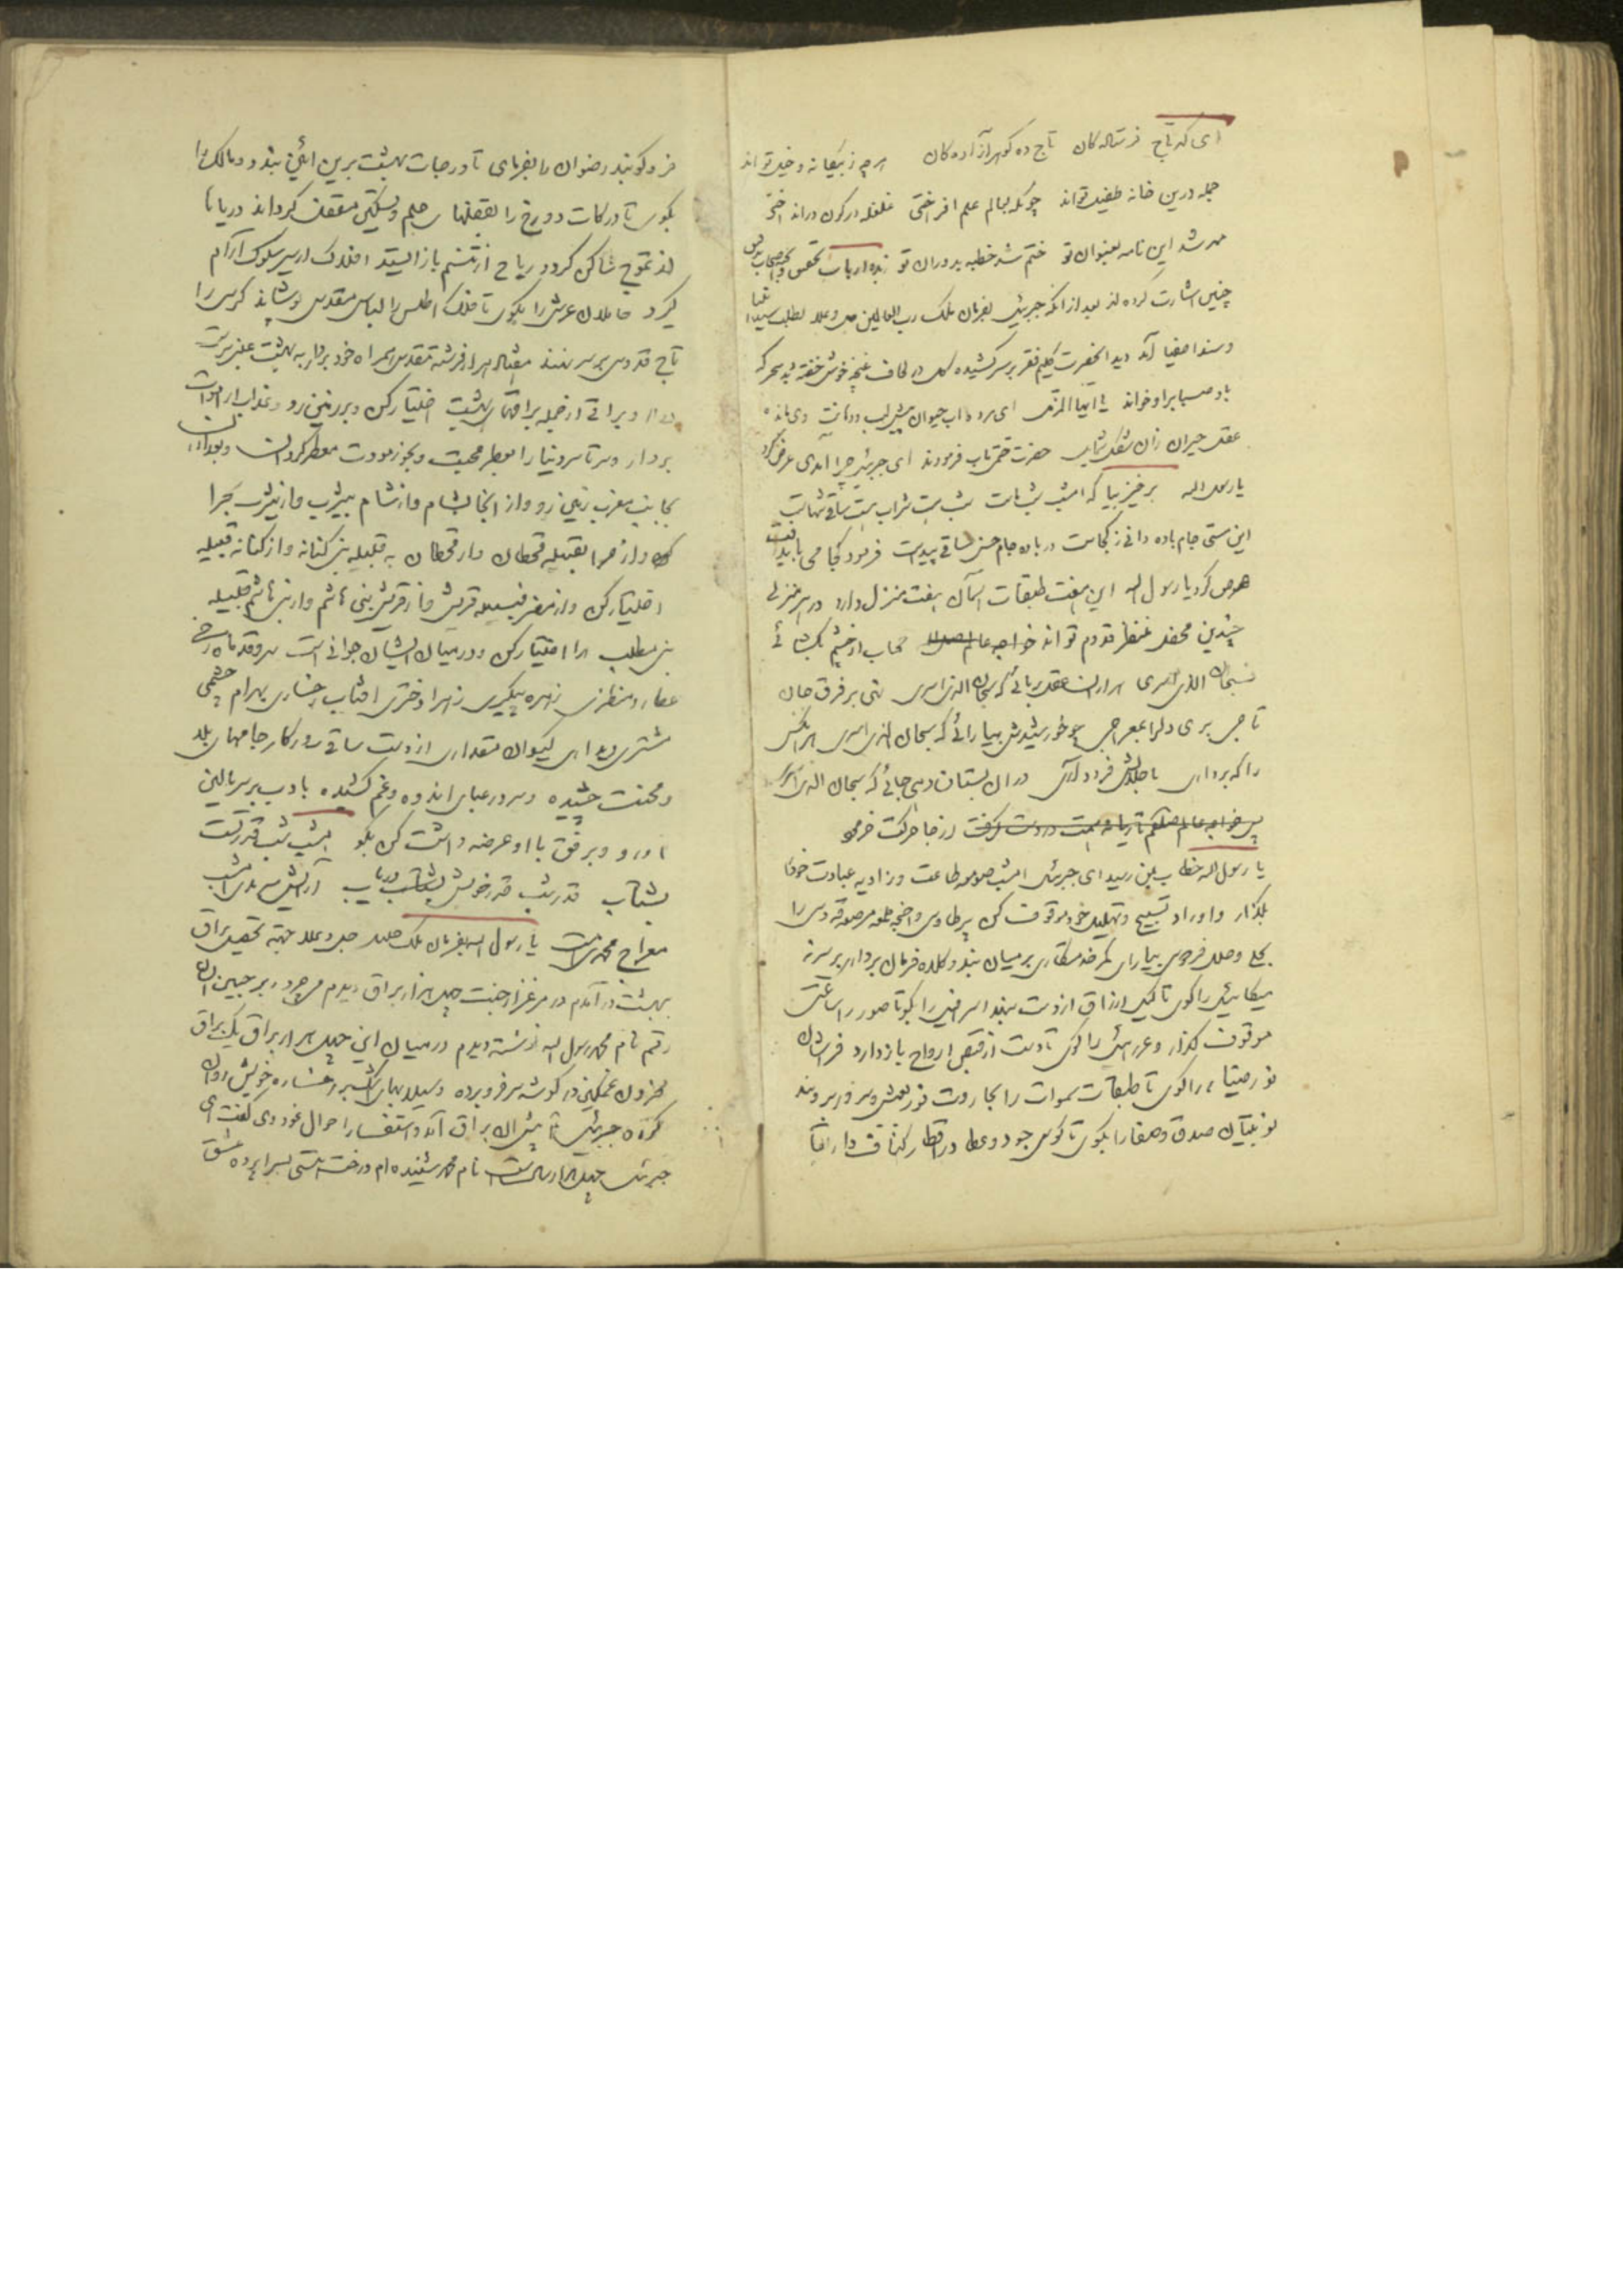 ای گهر تاج فرستاده‌کان تاج ده گوهر آزاده‌کان هرچه ز بیگانه و خیل تواند
جمله درین خانه طفیل تواند چونکه بعالم علم افراختی غلغله در کون در انداختی
مهر شد این نامه بعنوان تو ختم شد خطبه بدوران تو زبده ارباب تحقیق و اصحاب
چنین اشارت کرده‌اند بعد از آنکه جبرئیل بفرمان ملک رب العالمین جل و علا بطلب سید انبیا
و سند اصفیا آمد دید آنحضرت گلیم فقر بر سر کشیده در لحاف غنچه خوش خفته بود سحر که
باد صبا بر او خواند یا ایها المزمل ای مرده آب حیوان پیش لب و دهانت وی مانده
عقل حیران زان شکل حضرت ختمی‌ماب فرمودند ای جبرئیل چرا آمدی عرض کرد
یا رسول الله برخیز بیا که امشب شب ماست شب هست شراب هست ساقی تنهاست
این مستی جام باده دانی ز کجاست در باده جام حسن ساقی پیداست فرمود کجا می باید رفت
عرض کرد یا رسول الله این هفت طبقات آسمان هفت منزل دارد در هر منزلی
چندین محفل منتظر قدوم تو اند خواجه عالم حجاب از چشم بگشائی
سبحان الذی اسری عقل بربائی که سبحان الذی اسری نهی بر فرق جان
تاجی بری دلرا بمعراجی چو خورشیدش بیارائی که سبحان الذی اسری هر آنکس
را که برداری باجلالش فرود آری در آن بستان دهی جائی که سبحان الذی اسری
پس خواجه عالم از جا حرکت فرمود
یا رسول الله خطاب بمن رسید ای جبرئیل امشب صومعه طاعت و زاویه عبادت خود را
بگذار و اوراد تسبیح و تهلیل خود موقوف کن پر طاوسی و اجنحه مرصع قدوسی را
بحلی و حلل فردوس بیارای کمر خدمتکاری بر میان بند و کلاه فرمان برداری بر سر نه
میکائیل را گوی تا کیل ارزاق از دست بنهد اسرافیل را بگو تا صور را ساعتی
موقوف گذارد و عزرائیل را گوی تا دست از قبض ارواح باز دارد فراشان
نور و ضیا را گوی تا طبقات سموات را بجاروب
نوبتیان صدق و صفا را بگوی تا کوس جود و عطا در اقطار اکناف دار البقا
فرو کوبند رضوان را بفرمای تا درجات بهشت برین آئین بندد و مالک را
بگوی تا درکات دوزخ را بقفلهای حلم و مقفل گرداند دریاها
از تموج ساکن گردد ریاح از تنسم باز ایستد افلاک از سیر سلوک آرام
گیرد حاملان عرش را بگوی تا فلک اطلس را لباس مقدس پوشاند کرسی را
تاج قدوسی بر سر نهند هفتاد هزار فرشته مقدس همراه خود بردار به بهشت عنبر سرشت
در آ و براقی از جمله براقهای بهشت اختیار کن و بر زمین رو و عذاب از اموات
بردار و سرتاسر دنیا را بعطر محبت و بخور مودت معطر گردان و بعد از آن
بجانب مغرب زمین رو و از آنجا بشام و از شام بیثرب و از یثرب بحرا
و از حرا بقبیله قحطان و از قحطان به قبیله بنی کنانه و از کنانه قبیله
اختیار کن و از مضر قبیله قریش و از قریش بنی هاشم و از بنی هاشم قبیله
بنی مطلب را اختیار کن و در میان ایشان جوانی است سرو قد ماه رخی
عطارد منظری زهره پیکری زهرا دختری آفتاب رخساری بهرام چشمی
مشتری دیداری کیوان مقداری از دست ساقی روزگار جامهای بلا
و محنت چشیده و سر در عبای اندوه و غم کشیده با ادب بر سر بالین
او رو و برفق با او عرضه داشت کن بگو امشب شب قدر تست
بشتاب قدر شب قدر خویش دریاب آرایش امشب
معراج محمد است یا رسول الله بفرمان ملک جلیل جل و علا جهته تحصیل براق
ببهشت در آمدم در مرغزار جنت چهل هزار براق دیدم می‌چرد بر جبین آنها
رقم نام محمد رسول الله نوشته دیدم در میان این چهل هزار براق یک براق
محزون غمگین در گوشه سر فرو برده و سیلاب سرشک بر رخساره خویش روان
کرده جبرئیل پیش آن براق آمد و استفسار احوال نمود وی گفت ای
جبرئیل چهل هزار سالست نام محمد شنیده‌ام و رخت هستی بسراپرده عشق